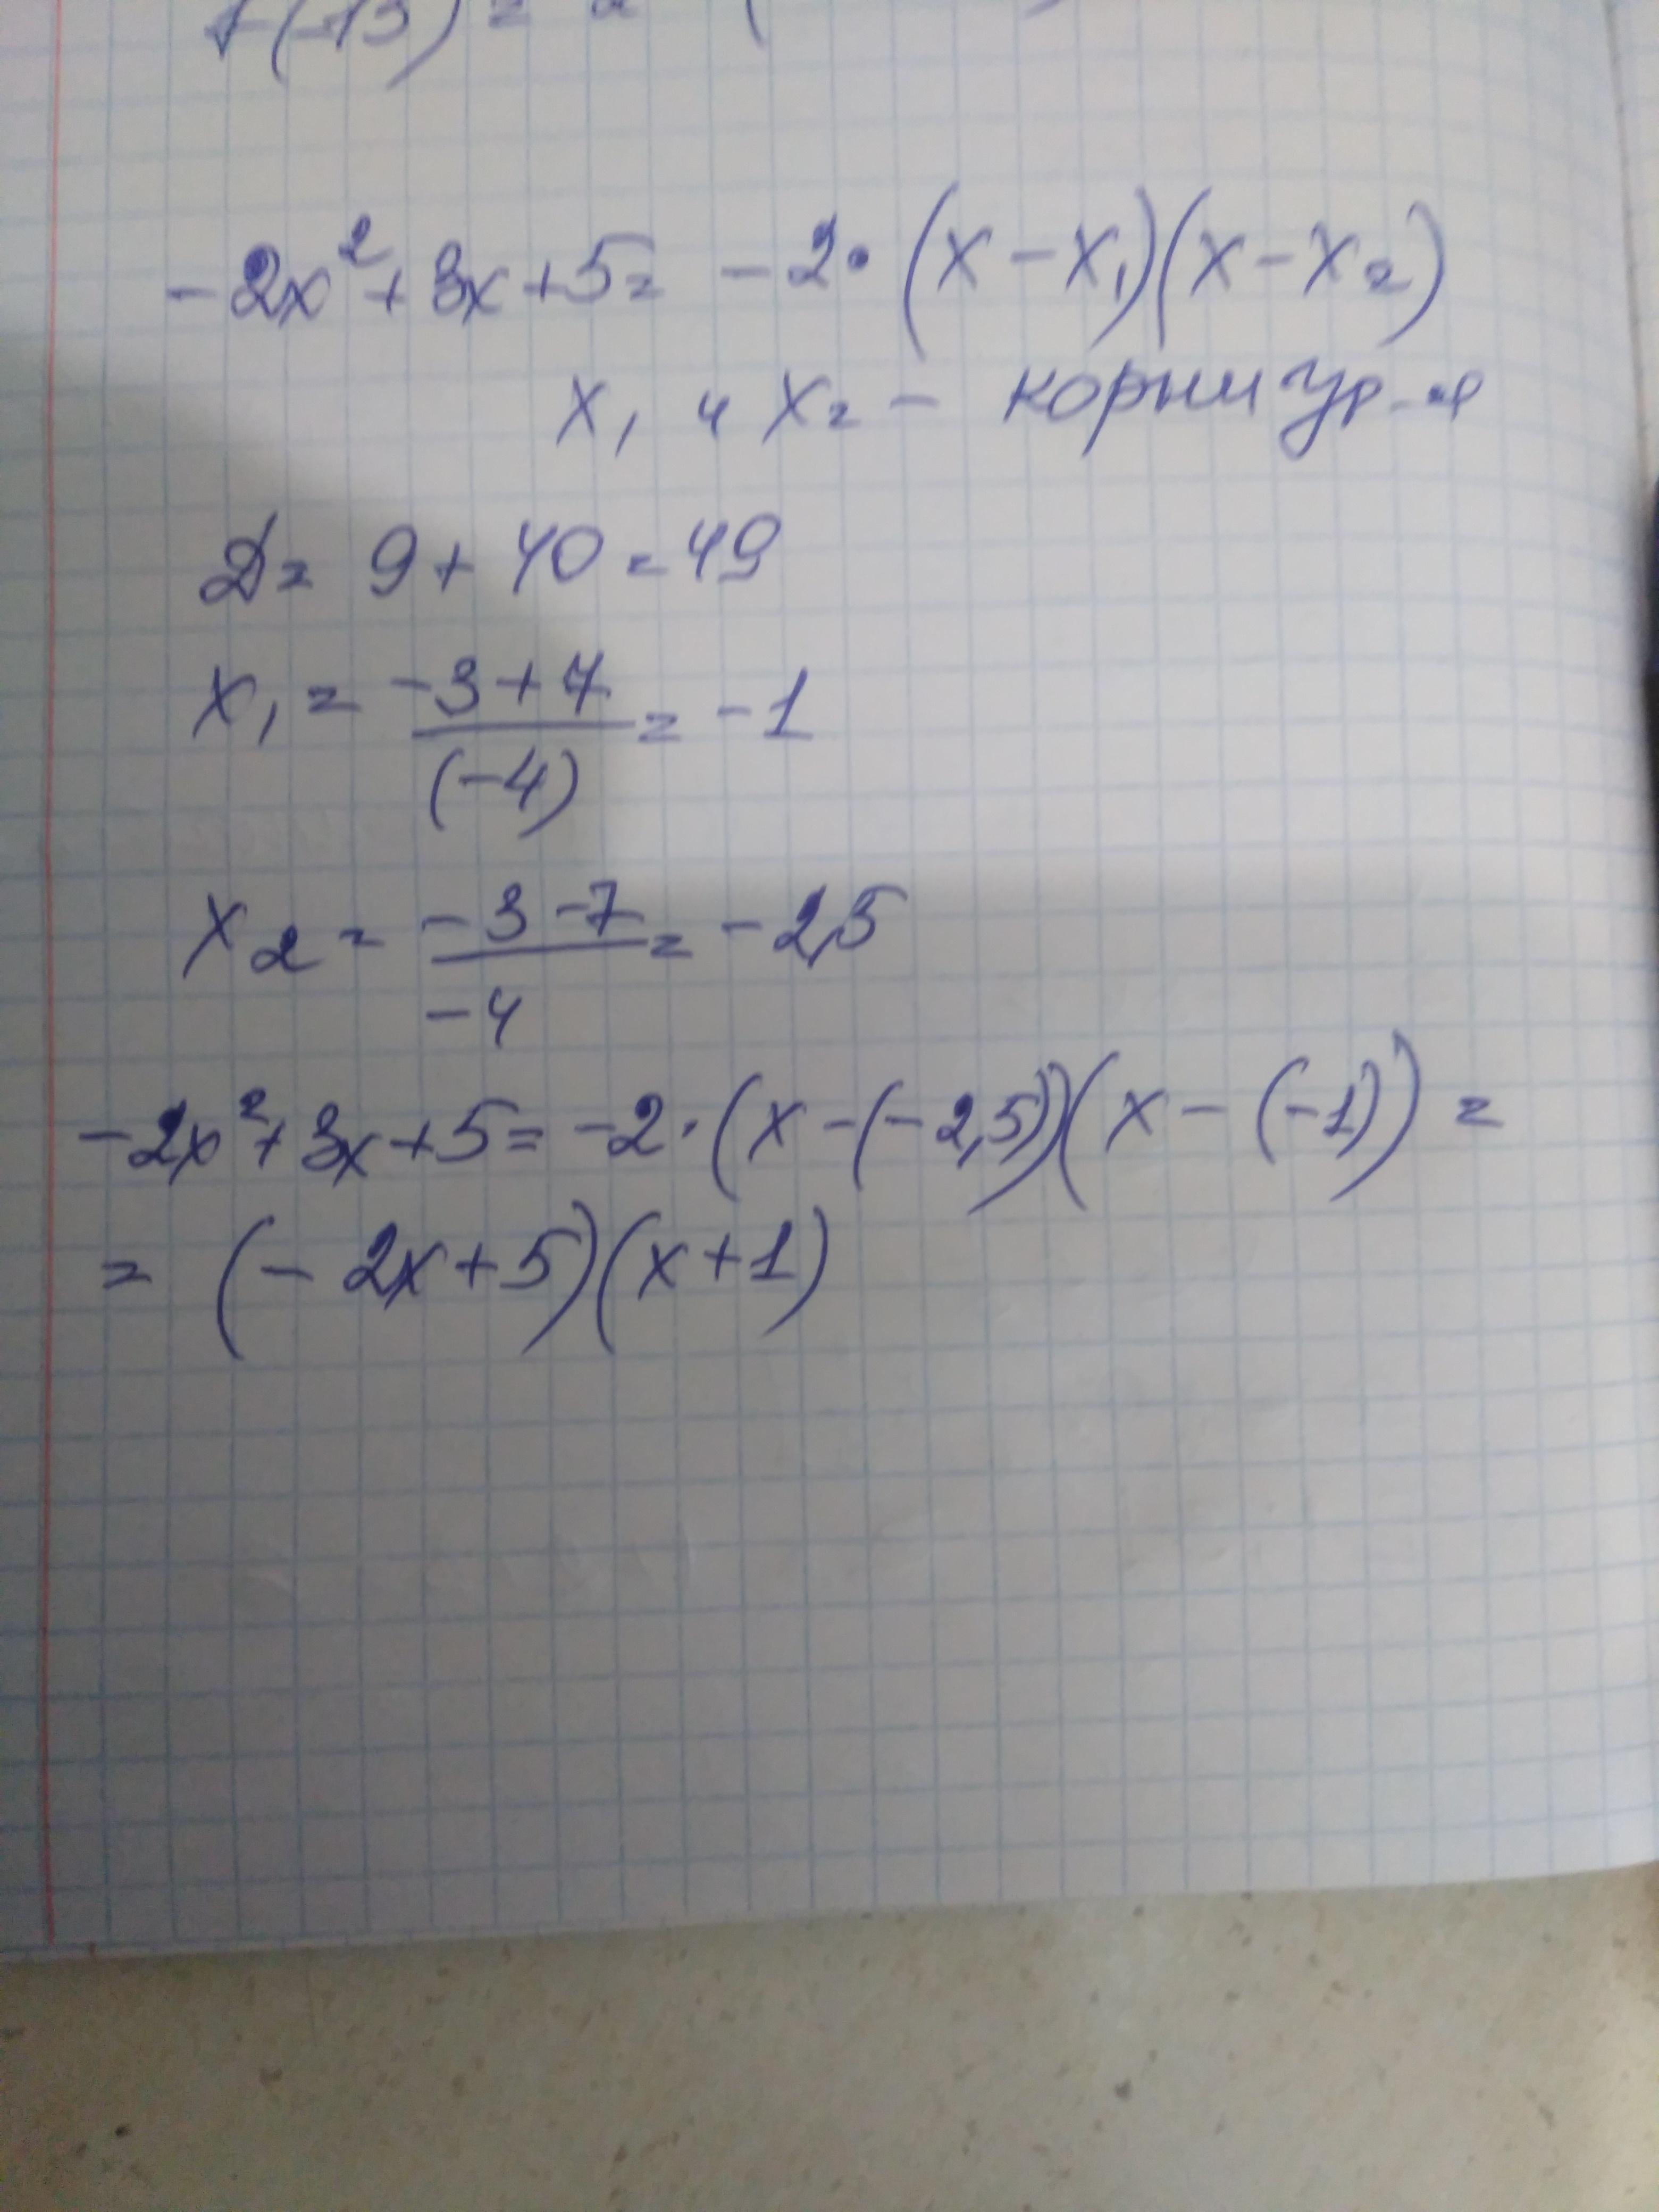 f(-13) =
-2x² + 3x + 5 = -2 · (x - x₁)(x - x₂)
x₁ и x₂ - корни ур-я
D = 9 + 40 = 49
x₁ = \frac{-3+7}{(-4)} = -1
x₂ = \frac{-3-7}{-4} = -2,5
-2x² + 3x + 5 = -2 · (x - (-2,5))(x - (-1)) =
= (-2x + 5)(x + 1)